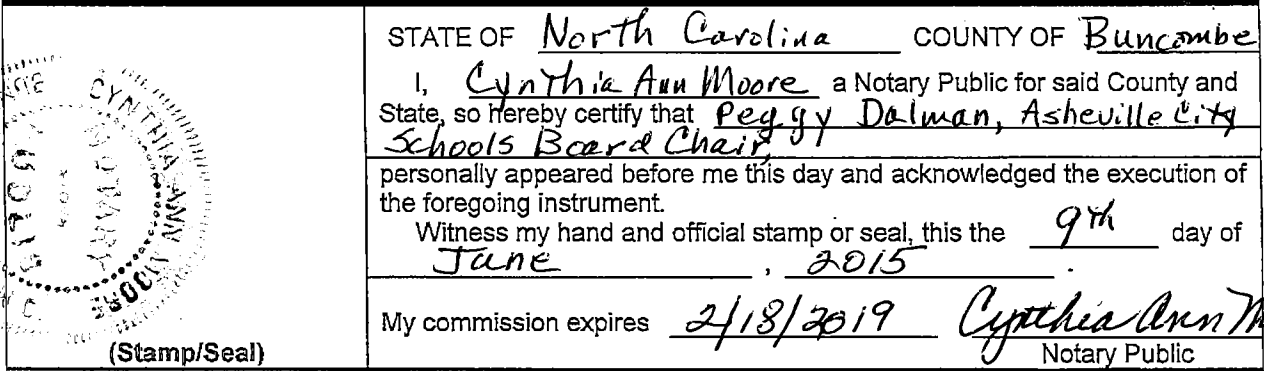 STATE OF North Carolina COUNTY OF Buncombe
I, Cynthia Ann Moore a Notary Public for said County and
State, so hereby certify that Peggy Dalman, Asheville City
Schools Board Chair,
personally appeared before me this day and acknowledged the execution of
the foregoing instrument.
Witness my hand and official stamp or seal, this the 9th day of
June, 2015.
My commission expires 2/18/2019 Cynthia Ann M
Notary Public
CYNTHIA ANN MOORE
NOTARY
(Stamp/Seal)